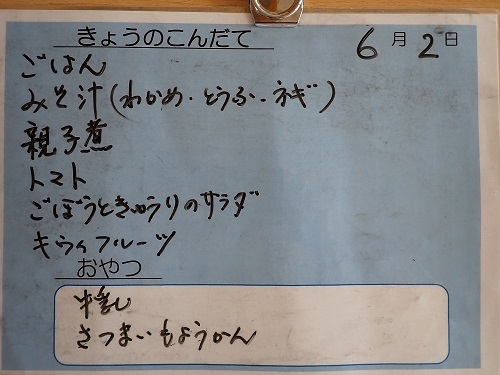 きょうのこんだて 6月2日
ごはん
みそ汁(わかめ・とうふ・ネギ)
親子煮
トマト
ごぼうときゅうりのサラダ
キウイフルーツ
おやつ
牛乳
さつまいもようかん